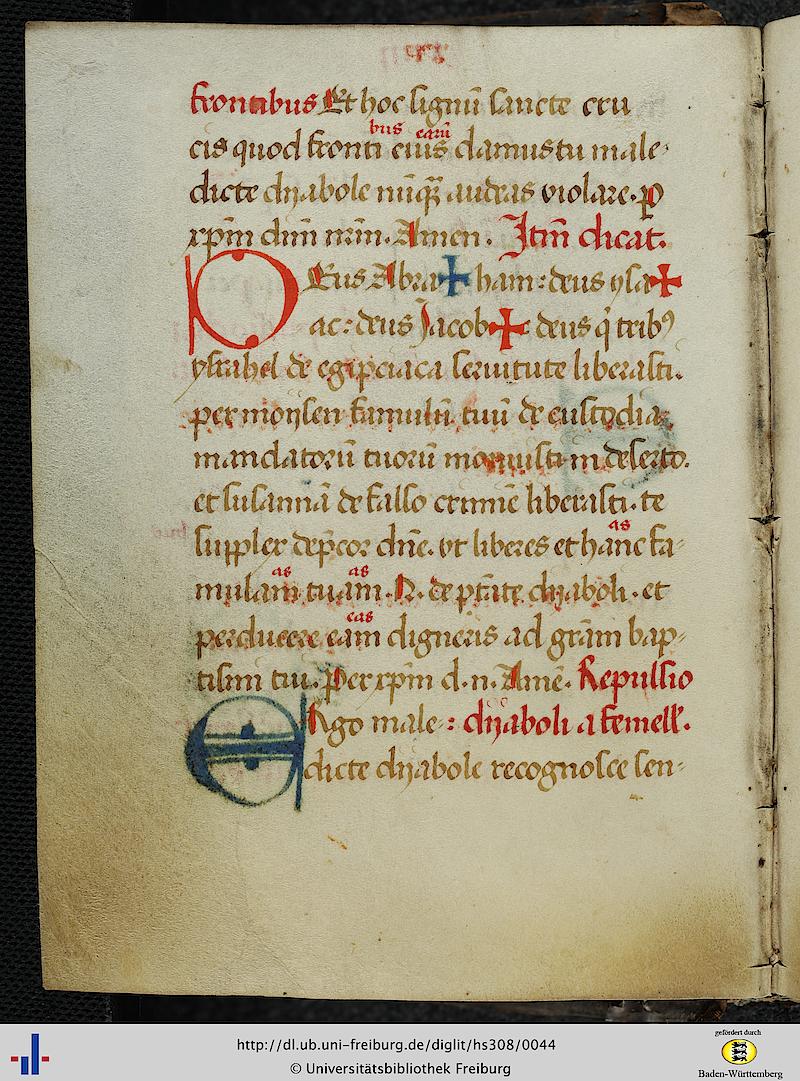 frontibus Et hoc signū sancte cru
bus earū
cis quod fronti eius damus tu male
dicte dyabole nūq̄ꝫ audeas violare. ꝑ
xp̄m dn̄m nr̄m. Amen. Itm̄ dicat.
DEus Abra✚ham: deus ysa✚
ac: deus Jacob✚ deus q̇ tribꝰ
ysrahel de egipciaca seruitute liberasti.
per moysen famulū tuū de custodia
mandatorū tuorū monuisti in deserto.
et susannā de falso crimīe liberasti. te
as
supplex dep̄cor dn̄e. vt liberes et hanc fa-
as as
mulam tuam. N. de ptāte dyaboli. et
eas
perducere eam digneris ad grām bap-
tismi tui. Per xp̄m d. n. Amē. Repulsio
ERgo male: dyaboli a femell'.
dicte dyabole recognosce sen-
http://dl.ub.uni-freiburg.de/diglit/hs308/0044
© Universitätsbibliothek Freiburg
gefördert durch
Baden-Württemberg